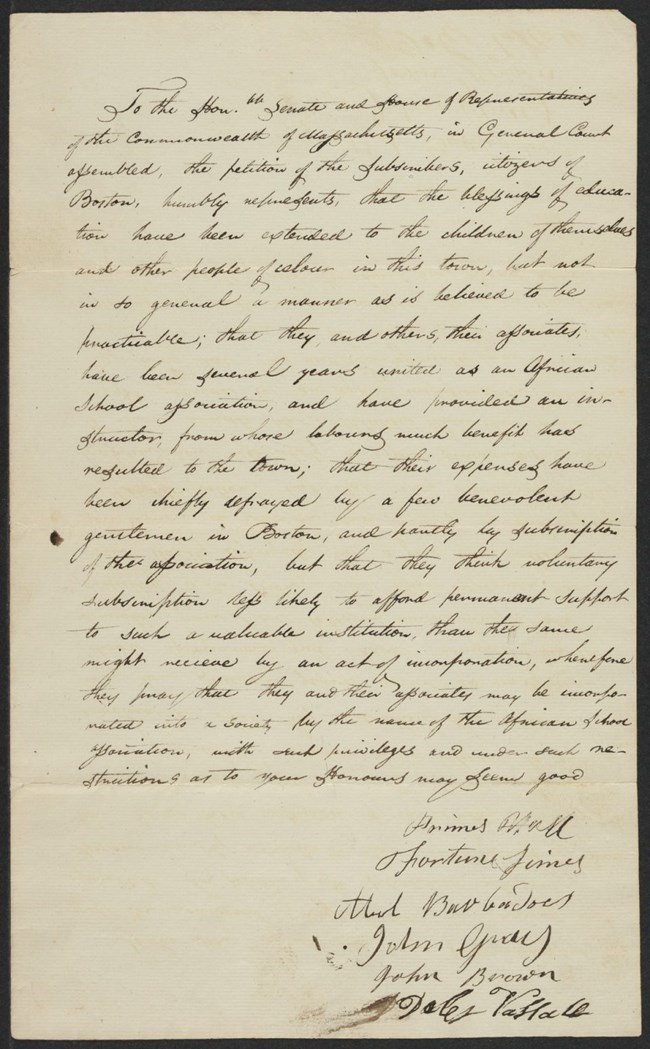 To the Hon.ble Senate and House of Representatives
of the Commonwealth of Massachusetts, in General Court
assembled, the petition of the subscribers, citizens of
Boston, humbly represents, that the blessings of educa-
tion have been extended to the children of themselves
and other people of colour in this town, but not
in so general a manner as is believed to be
practicable; that they, and others, their associates,
have been several years united as an African
School association, and have provided an in-
structor, from whose labours much benefit has
resulted to the town; that their expenses have
been chiefly defrayed by a few benevolent
gentlemen in Boston, and partly by subscription
of the association, but that they think voluntary
subscription less likely to afford permanent support
to such a valuable institution, than the same
might recieve by an act of incorporation, wherefore
they pray that they and their associates may be incorpo-
rated into a society by the name of the African School
association, with such privileges and under such re-
strictions as to your Honours may seem good
Primes Hall
Fortune Simes
Abel Barbadoes
John Gray
John Brown
Vassall